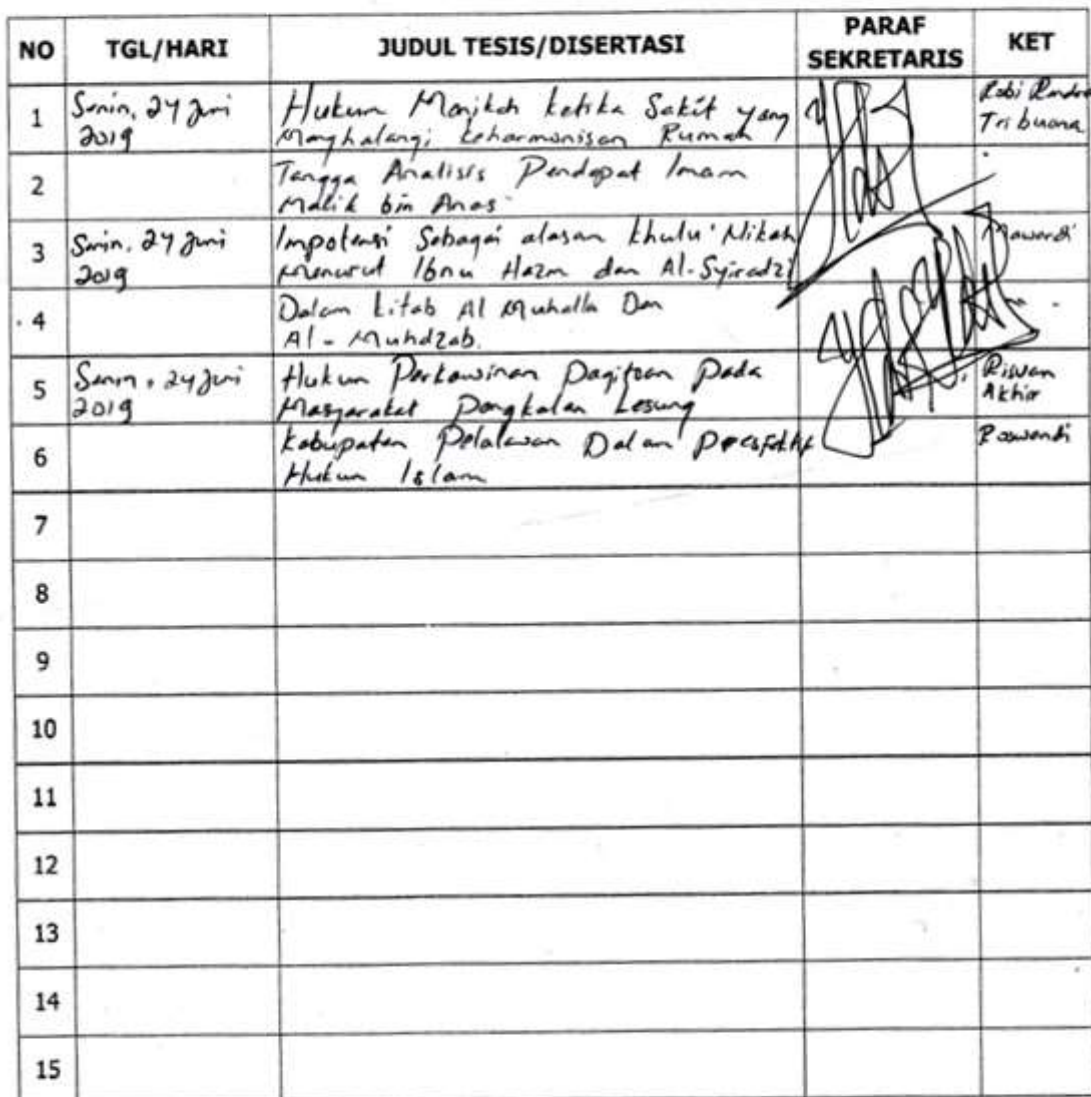 NO TGL/HARI JUDUL TESIS/DISERTASI PARAF SEKRETARIS KET
1 Senin, 24 Juni 2019 Hukum Menikah ketika Sakit yang Tribuana
Menghalangi keharmonisan Rumah
2 Tangga Analisis Pendapat Imam
Malik bin Anas
3 Senin, 24 Juni 2019 Impotensi Sebagai alasan khulu' Nikah Mawardi
Menurut Ibnu Hazm dan Al-Syiradzi
4 Dalam kitab Al Muhalla Dan
Al-Muhdzab.
5 Senin, 24 Juni 2019 Hukum Perkawinan Pada Riswan Akhir
Masyarakat Pangkalan Lesung
6 Kabupaten Pelalawan Dalam Roswendi
Hukum Islam
7
8
9
10
11
12
13
14
15